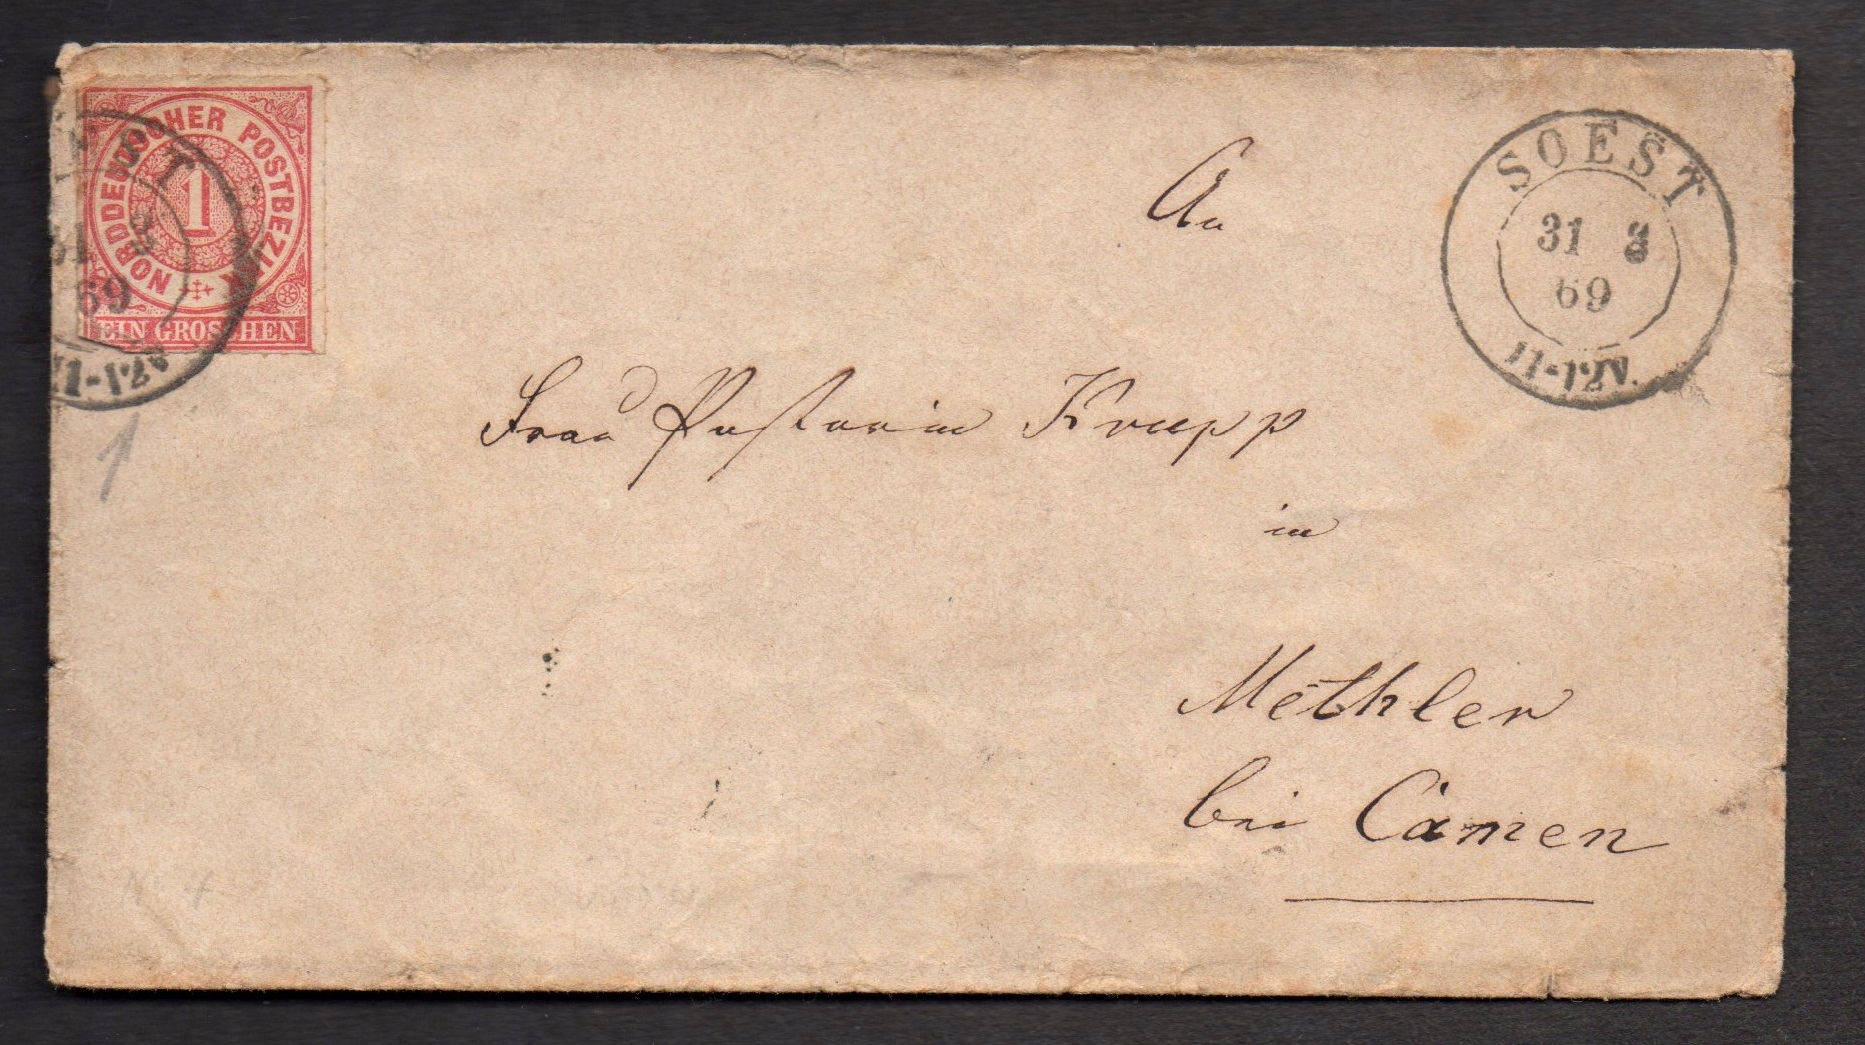 NORDDEUTSCHER POSTBEZIRK
1
EIN GROSCHEN
SOEST
31 3
69
11-12V.
31 3
69
11-12V
1
An
Frau Pastorin Krupp
in
Methler
bei Camen
No 4